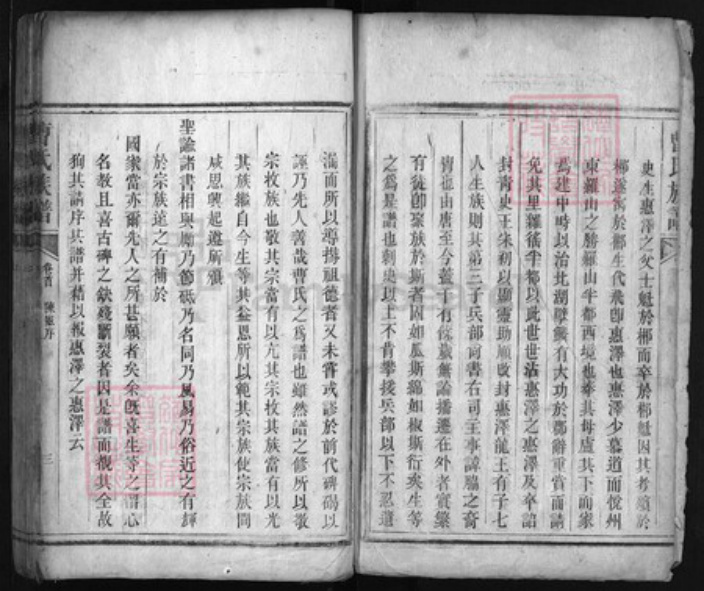 史生惠澤之父士魁於郴而卒於郴魁因其考殯於
郴遂家於郴生代飛卽惠澤也惠澤少慕道而悅州
東羅山之勝羅山半都西境也奉其母廬其下而家
焉建中時以治北湖孽龍有大功於郡辭重賞而請
免其里雜徭半都以此世世沾惠澤之惠澤及卒詔
封靑史王宋初以顯靈助順改封惠澤龍王有子七
人生族則其第三子兵部尚書右司主事諱 之裔
胄也由唐至今蓋千有餘歲無論播遷在外者實繁
有徒卽聚族於斯者固如瓜斯綿如椒斯衍矣生等
之爲是譜也刺史以上不肯攀援兵部以下不忍遺
漏而所以導揚祖德者又未嘗或謬於前代碑碣以
誣乃先人善哉曹氏之爲譜也雖然譜之修所以敬
宗收族也敬其宗當有以亢其宗收其族當有以光
其族繼自今生等其益思所以範其宗族使宗族間
咸思興起遵所頒
聖諭諸書相與勵乃節砥乃名同乃風易乃俗近之有歸
於宗族遠之有補於
國家當亦爾先人之所甚願者矣余旣喜生等之用心
名敎且喜古碑之缺殘斷裂者因是譜而覩其全故
狥其請序其譜幷藉以報惠澤之惠澤云
曹氏族譜
卷首
三
曹氏族譜